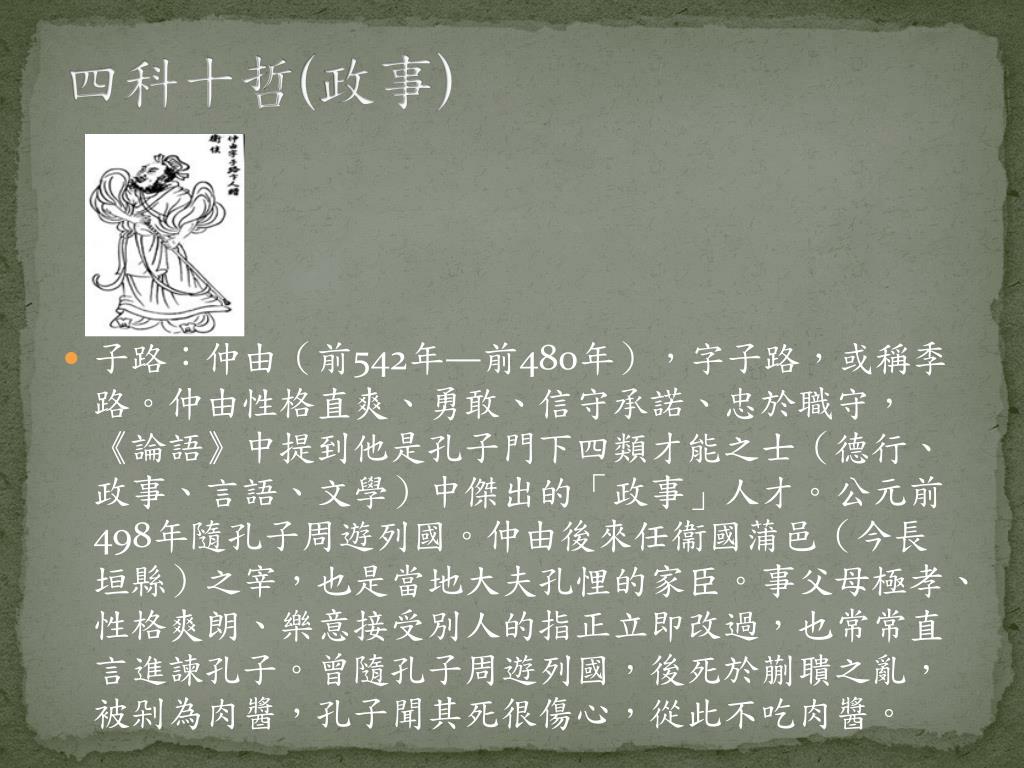 四科十哲(政事)
仲由字子路卞人贈
衛侯
子路：仲由（前542年—前480年），字子路，或稱季
路。仲由性格直爽、勇敢、信守承諾、忠於職守，
《論語》中提到他是孔子門下四類才能之士（德行、
政事、言語、文學）中傑出的「政事」人才。公元前
498年隨孔子周遊列國。仲由後來任衞國蒲邑（今長
垣縣）之宰，也是當地大夫孔悝的家臣。事父母極孝、
性格爽朗、樂意接受別人的指正立即改過，也常常直
言進諫孔子。曾隨孔子周遊列國，後死於蒯聵之亂，
被剁為肉醬，孔子聞其死很傷心，從此不吃肉醬。